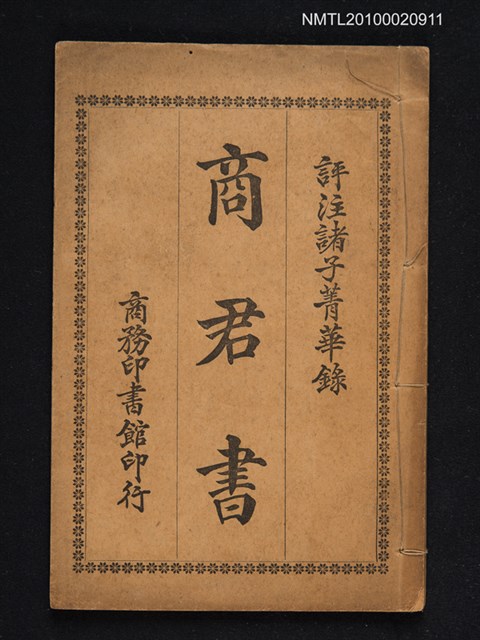 NMTL20100020911
評注諸子菁華錄
商君書
商務印書館印行